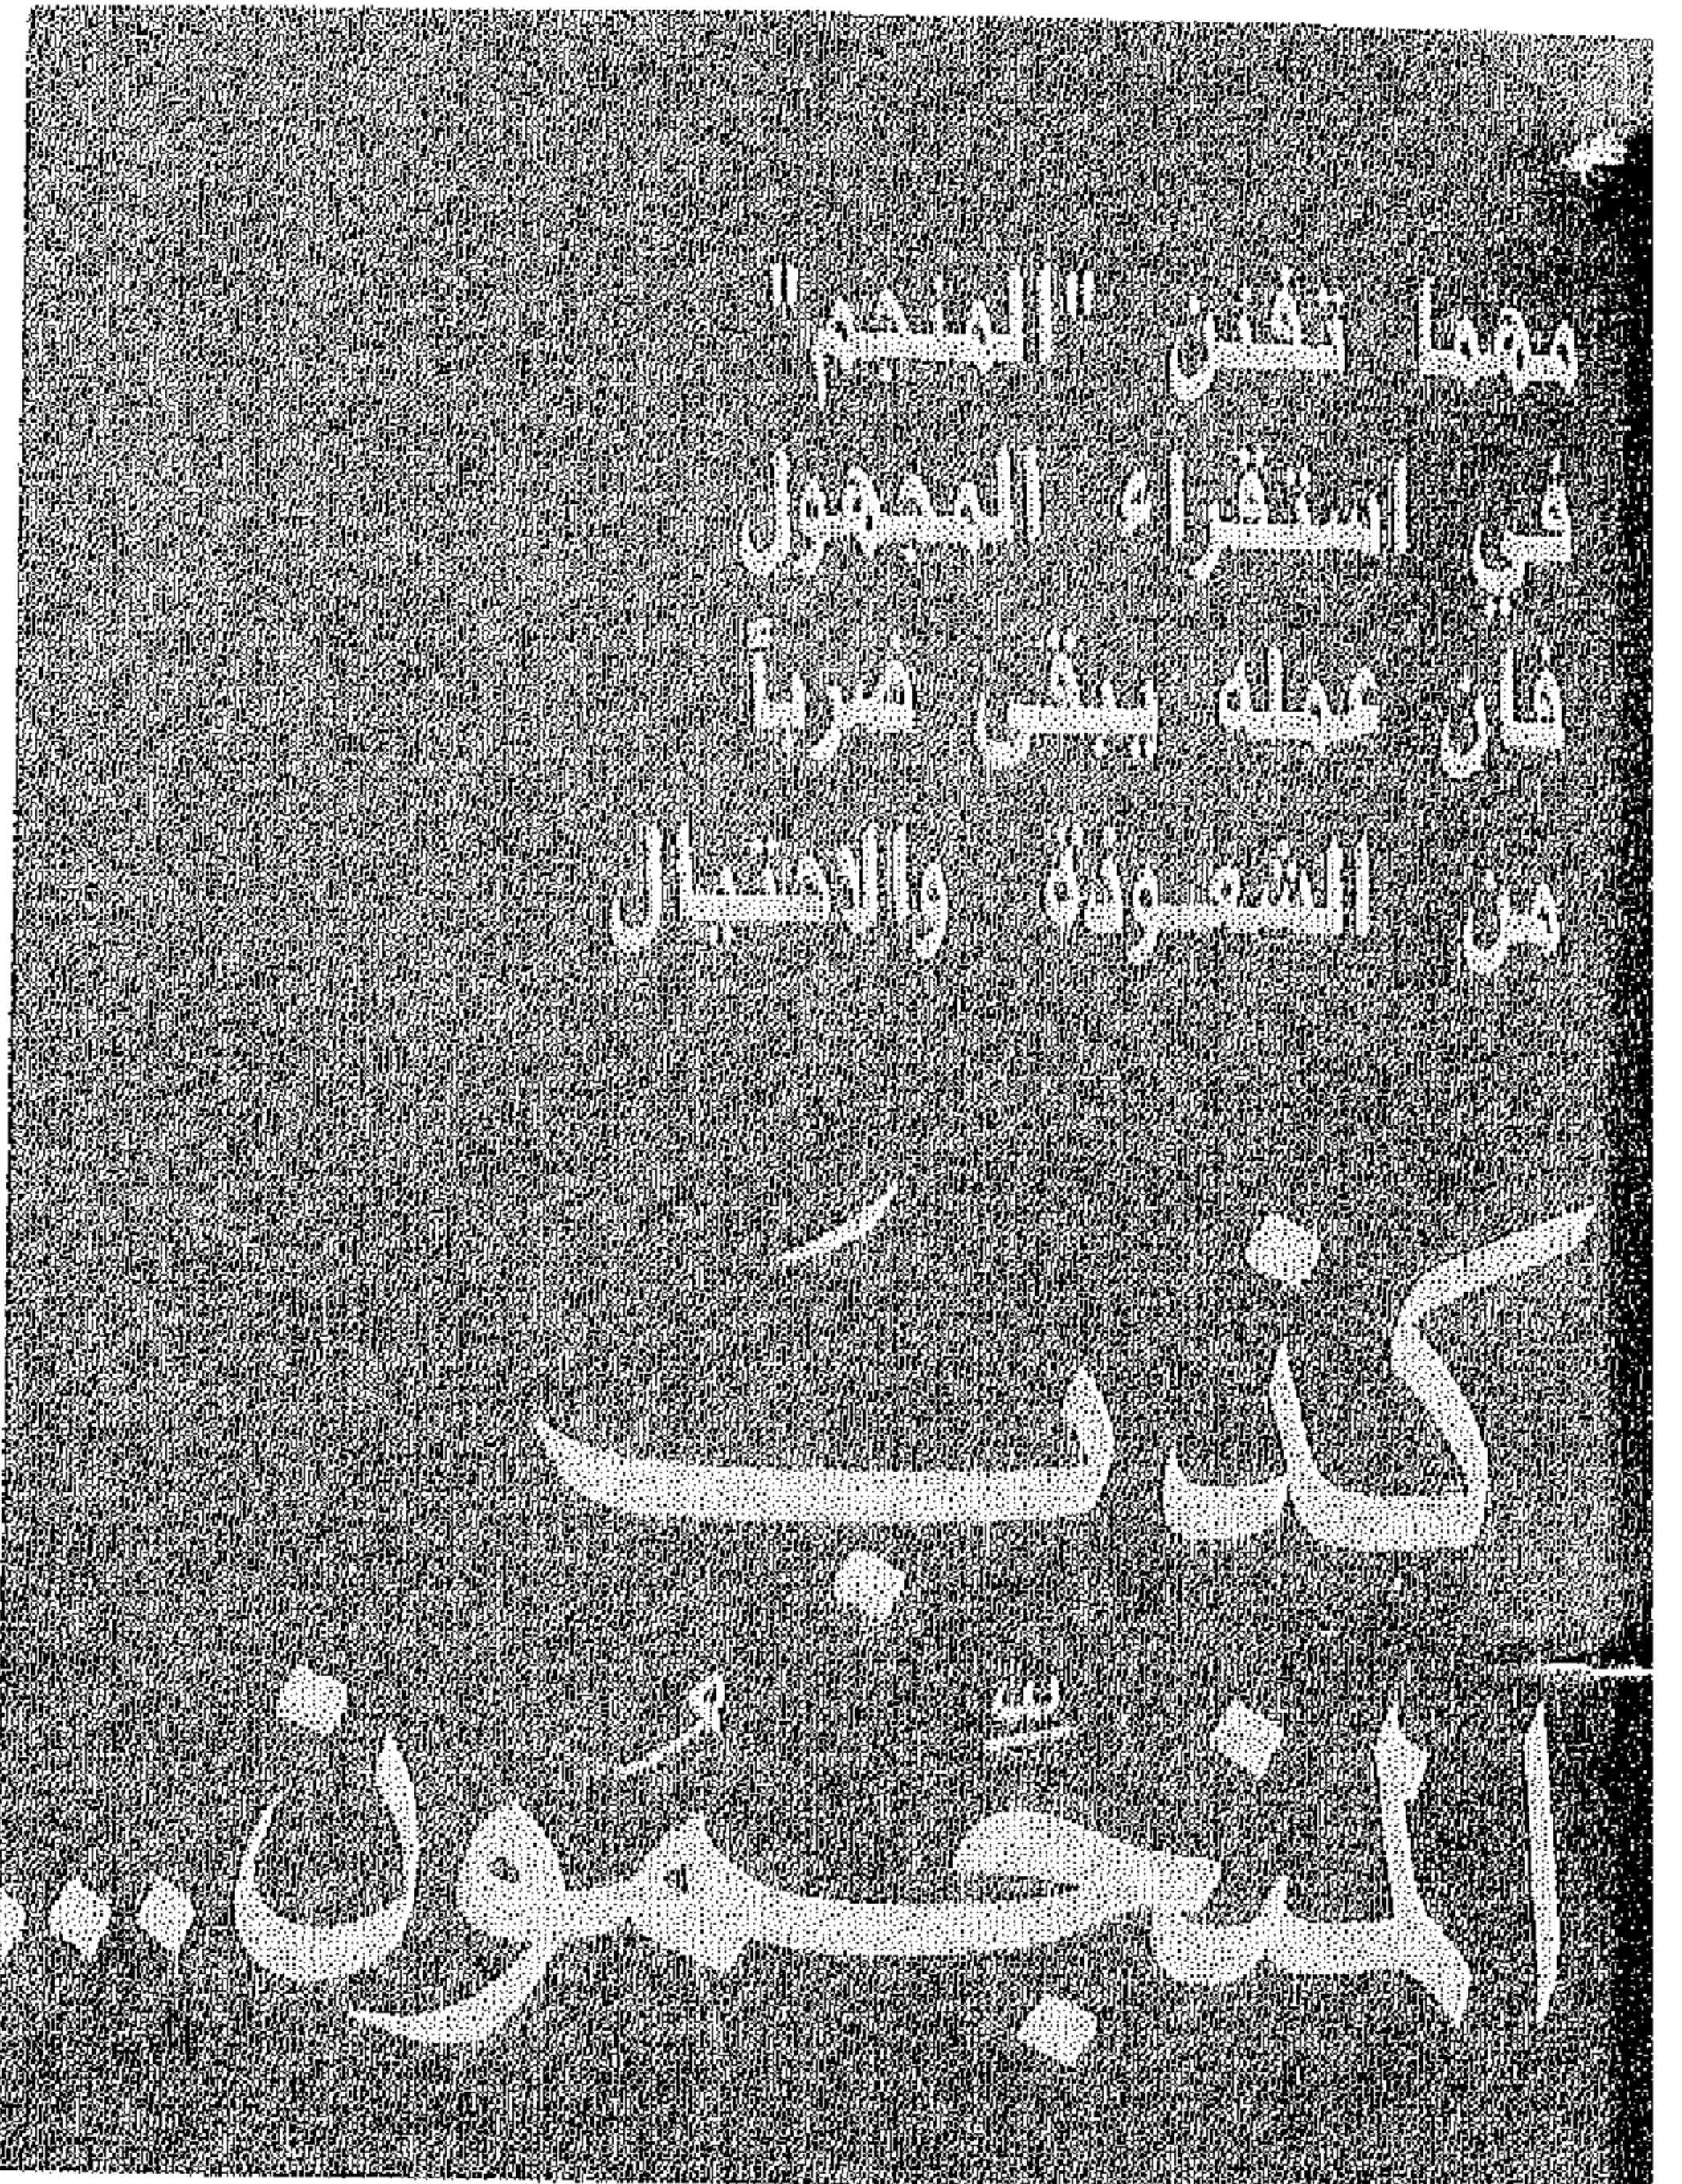 مهما تفنن "المنجم"
في استقراء المجهول
فان عمله يبقى ضرباً
من الشعوذة والاحتيال
كذب
المنجمون...